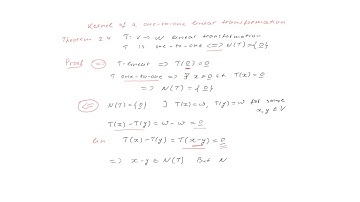 Kernel of a one-to-one linear transformation
Theorem 2.4 T: V → W linear transformation
T is one-to-one <=> N(T) = {0}
Proof => T-linear => T(0) = 0
T one-to-one => ∄ x≠0 st T(x) = 0
=> N(T) = {0}
<= N(T) = {0} ] T(x) = w, T(y) = w for some x, y ∈ V
T(x) - T(y) = w - w = 0
lin T(x) - T(y) = T(x-y) = 0
=> x-y ∈ N(T) But N